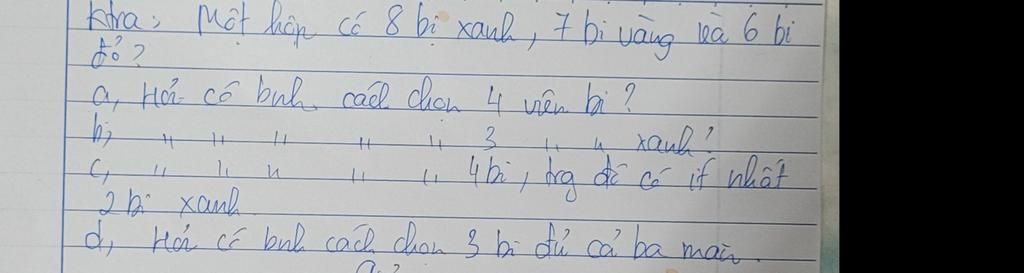 Ktra: Một hộp có 8 bi xanh, 7 bi vàng và 6 bi
đỏ?
a, Hỏi có bnh cách chọn 4 viên bi?
b, " " " " " 3 " " xanh?
c, " " " " " 4 bi, trg đó có ít nhất
2 bi xanh.
d, Hỏi có bnh cách chọn 3 bi đủ cả ba màu.